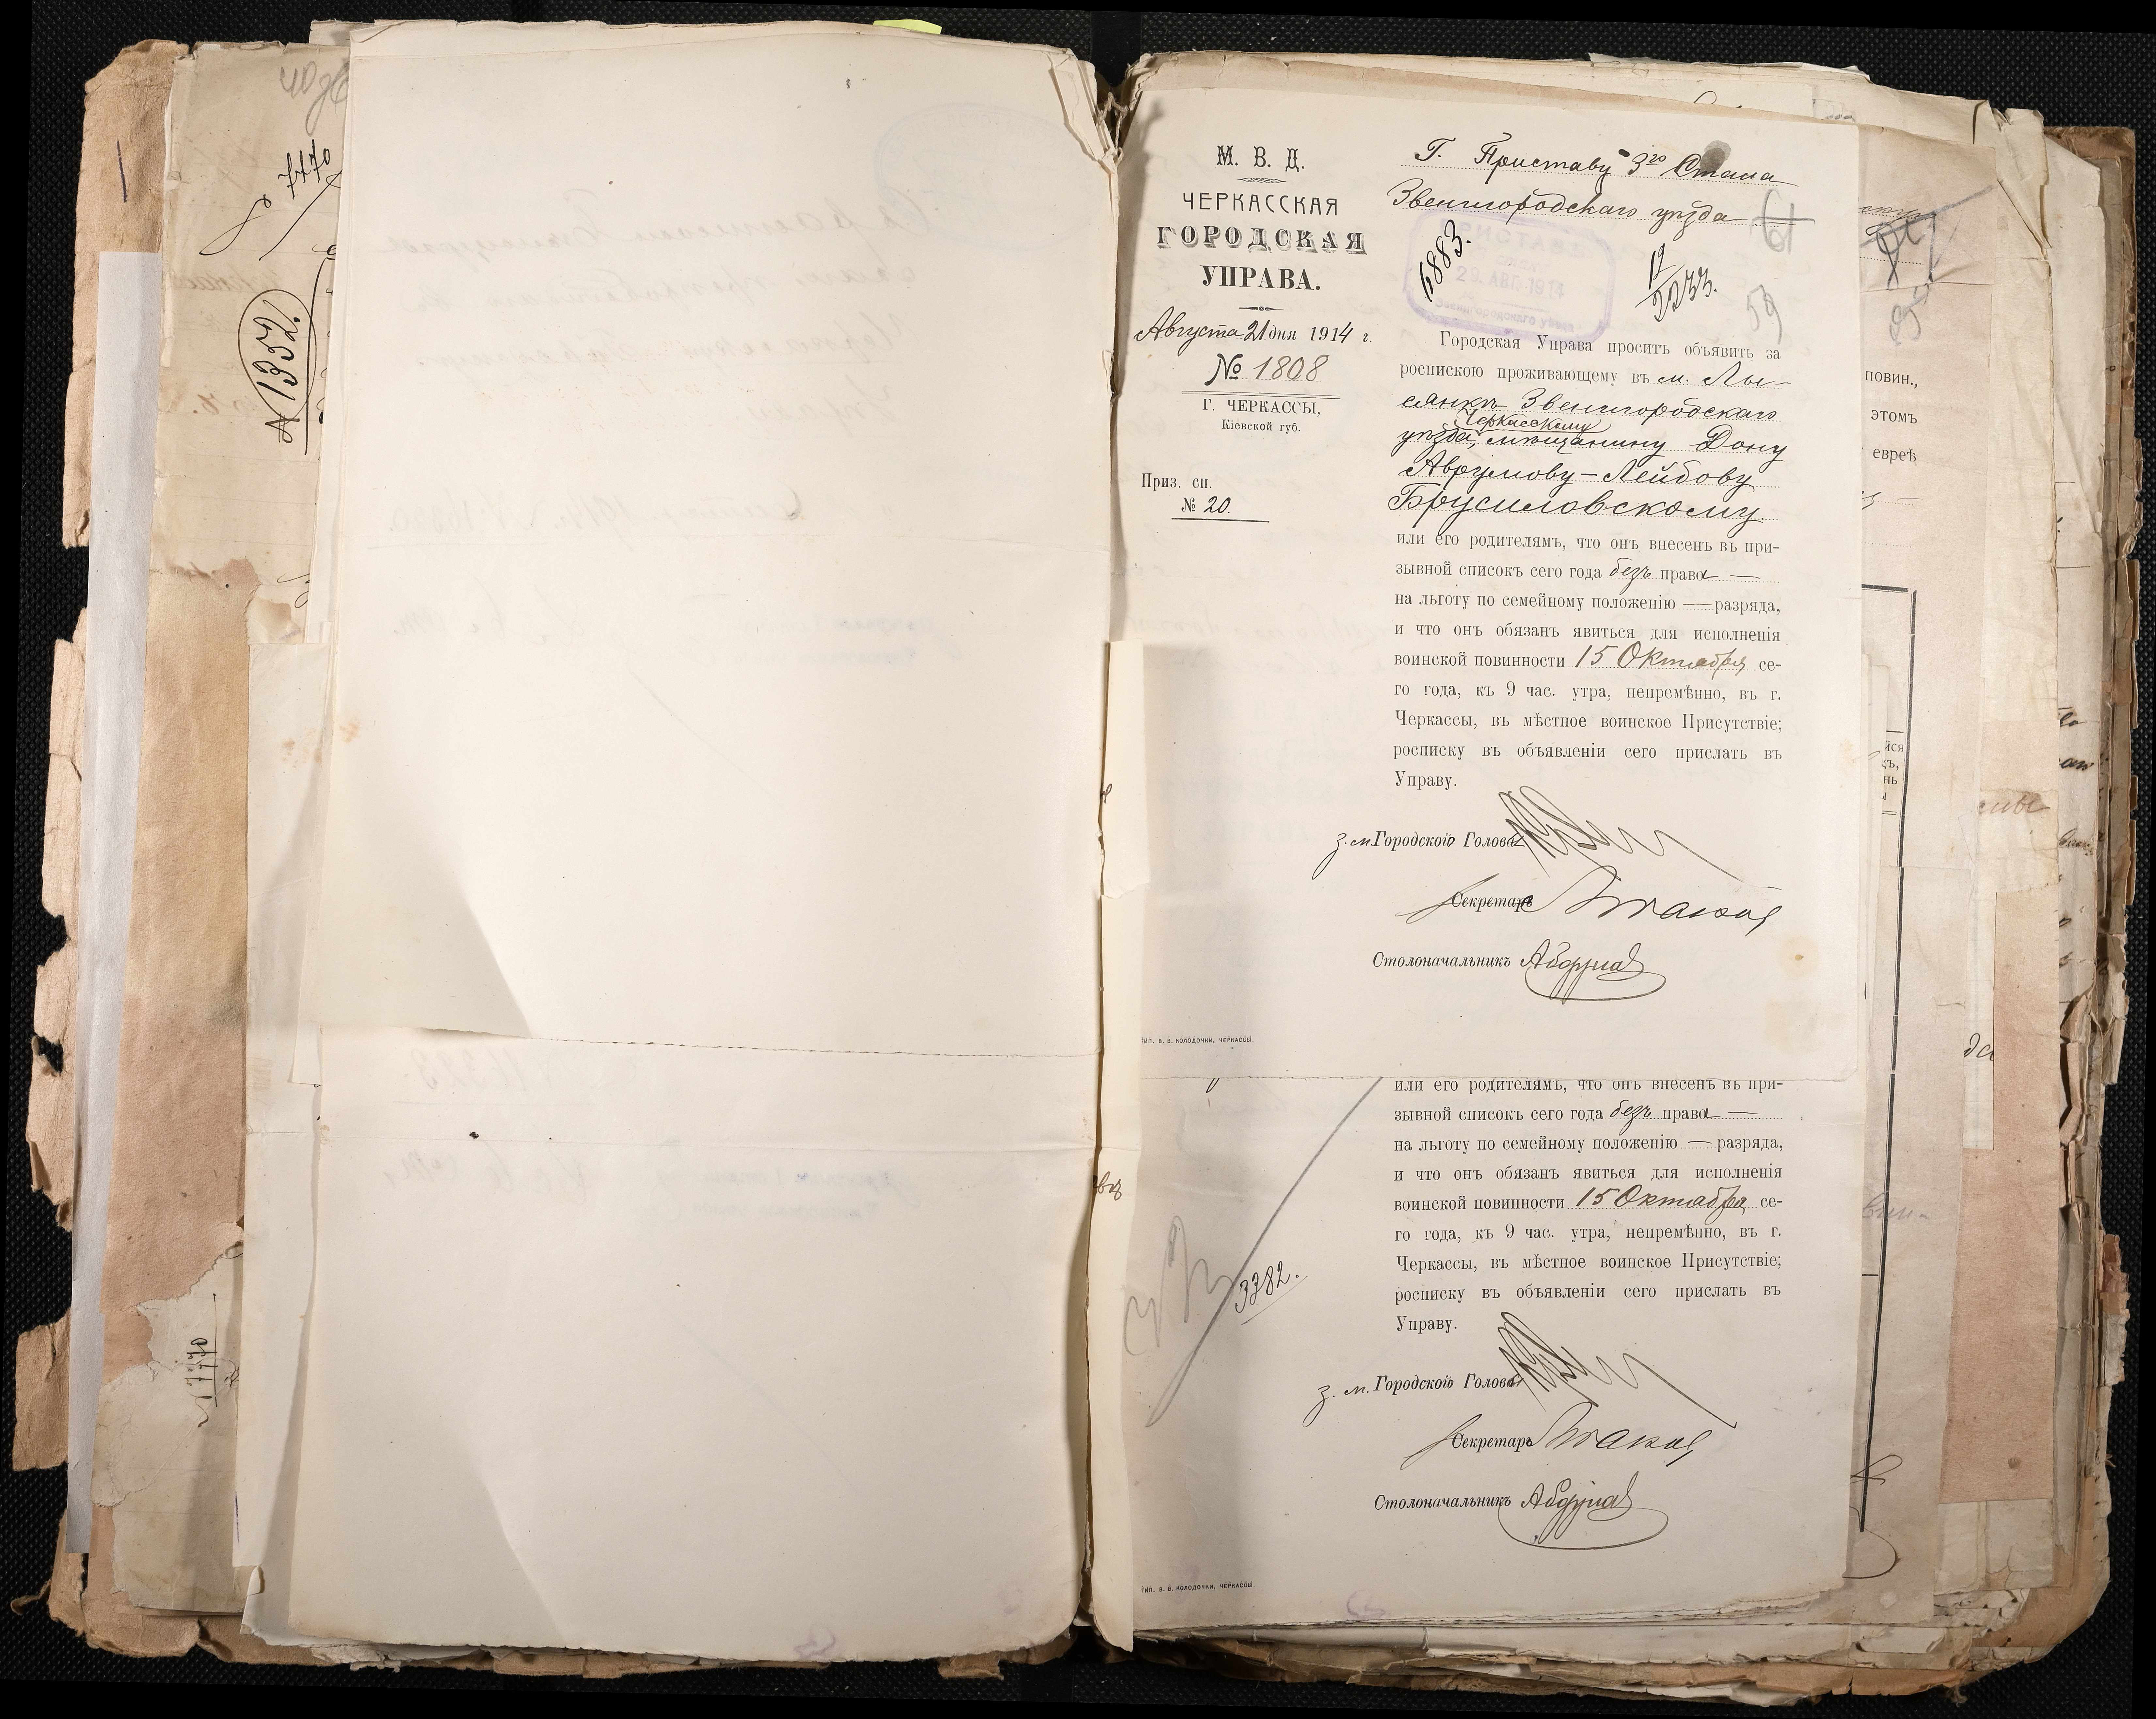 7170
A 13652.
М. В. Д.
ЧЕРКАССКАЯ
ГОРОДСКАЯ
УПРАВА.
Августа 21 дня 1914 г.
№ 1808
Г. ЧЕРКАССЫ,
Кіевской губ.
Приз. сп.
№ 20.
Г. Приставу 3го Стана
Звенигородскаго уѣзда
61
6883.
ПРИСТАВЪ
29. АВГ. 1914
Звенигородскаго уѣзда
59
Городская Управа проситъ объявить за
роспискою проживающему въ м. Лы-
сянкѣ Звенигородскаго
Черкасскому
уѣзда, мѣщанину Дону
Аврумову-Лейбову
Брусиловскому.
или его родителямъ, что онъ внесенъ въ при-
зывной списокъ сего года безъ права —
на льготу по семейному положенію — разряда,
и что онъ обязанъ явиться для исполненія
воинской повинности 15 Октября се-
го года, къ 9 час. утра, непремѣнно, въ г.
Черкассы, въ мѣстное воинское Присутствіе;
росписку въ объявленіи сего прислать въ
Управу.
з. м. Городского Головы
Секретарь
Столоначальникъ
ТИП. В. В. КОЛОДОЧКИ, ЧЕРКАССЫ.
или его родителямъ, что онъ внесенъ въ при-
зывной списокъ сего года безъ права —
на льготу по семейному положенію — разряда,
и что онъ обязанъ явиться для исполненія
воинской повинности 15 Октября се-
го года, къ 9 час. утра, непремѣнно, въ г.
Черкассы, въ мѣстное воинское Присутствіе;
росписку въ объявленіи сего прислать въ
Управу.
3382.
з. м. Городского Головы
Секретарь
Столоначальникъ
ТИП. В. В. КОЛОДОЧКИ, ЧЕРКАССЫ
повин.,
этомъ
евреѣ